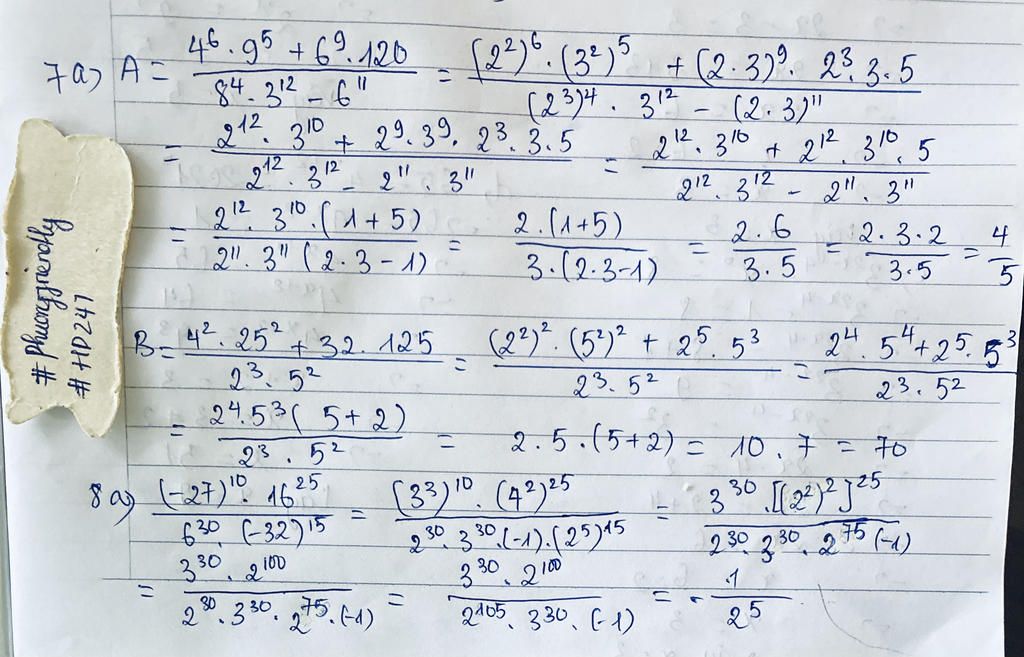 7a) A = (4^6 · 9^5 + 6^9 · 120) / (8^4 · 3^12 − 6^11) = ((2^2)^6 · (3^2)^5 + (2·3)^9 · 2^3 · 3 · 5) / ((2^3)^4 · 3^12 − (2·3)^11)
= (2^12 · 3^10 + 2^9 · 3^9 · 2^3 · 3 · 5) / (2^12 · 3^12 − 2^11 · 3^11) = (2^12 · 3^10 + 2^12 · 3^10 · 5) / (2^12 · 3^12 − 2^11 · 3^11)
= (2^12 · 3^10 · (1+5)) / (2^11 · 3^11 (2·3−1)) = (2·(1+5)) / (3·(2·3−1)) = (2·6) / (3·5) = (2·3·2) / (3·5) = 4/5
B = (4^2 · 25^2 + 32 · 125) / (2^3 · 5^2) = ((2^2)^2 · (5^2)^2 + 2^5 · 5^3) / (2^3 · 5^2) = (2^4 · 5^4 + 2^5 · 5^3) / (2^3 · 5^2)
= (2^4 · 5^3 (5+2)) / (2^3 · 5^2) = 2 · 5 · (5+2) = 10 · 7 = 70
8a) ((-27)^10 · 16^25) / (6^30 · (-32)^15) = ((3^3)^10 · (4^2)^25) / (2^30 · 3^30 · (-1) · (2^5)^15) = (3^30 · [(2^2)^2]^25) / (2^30 · 3^30 · 2^75 (-1))
= (3^30 · 2^100) / (2^30 · 3^30 · 2^75 · (-1)) = (3^30 · 2^100) / (2^105 · 3^30 · (-1)) = - 1/2^5
# HD247